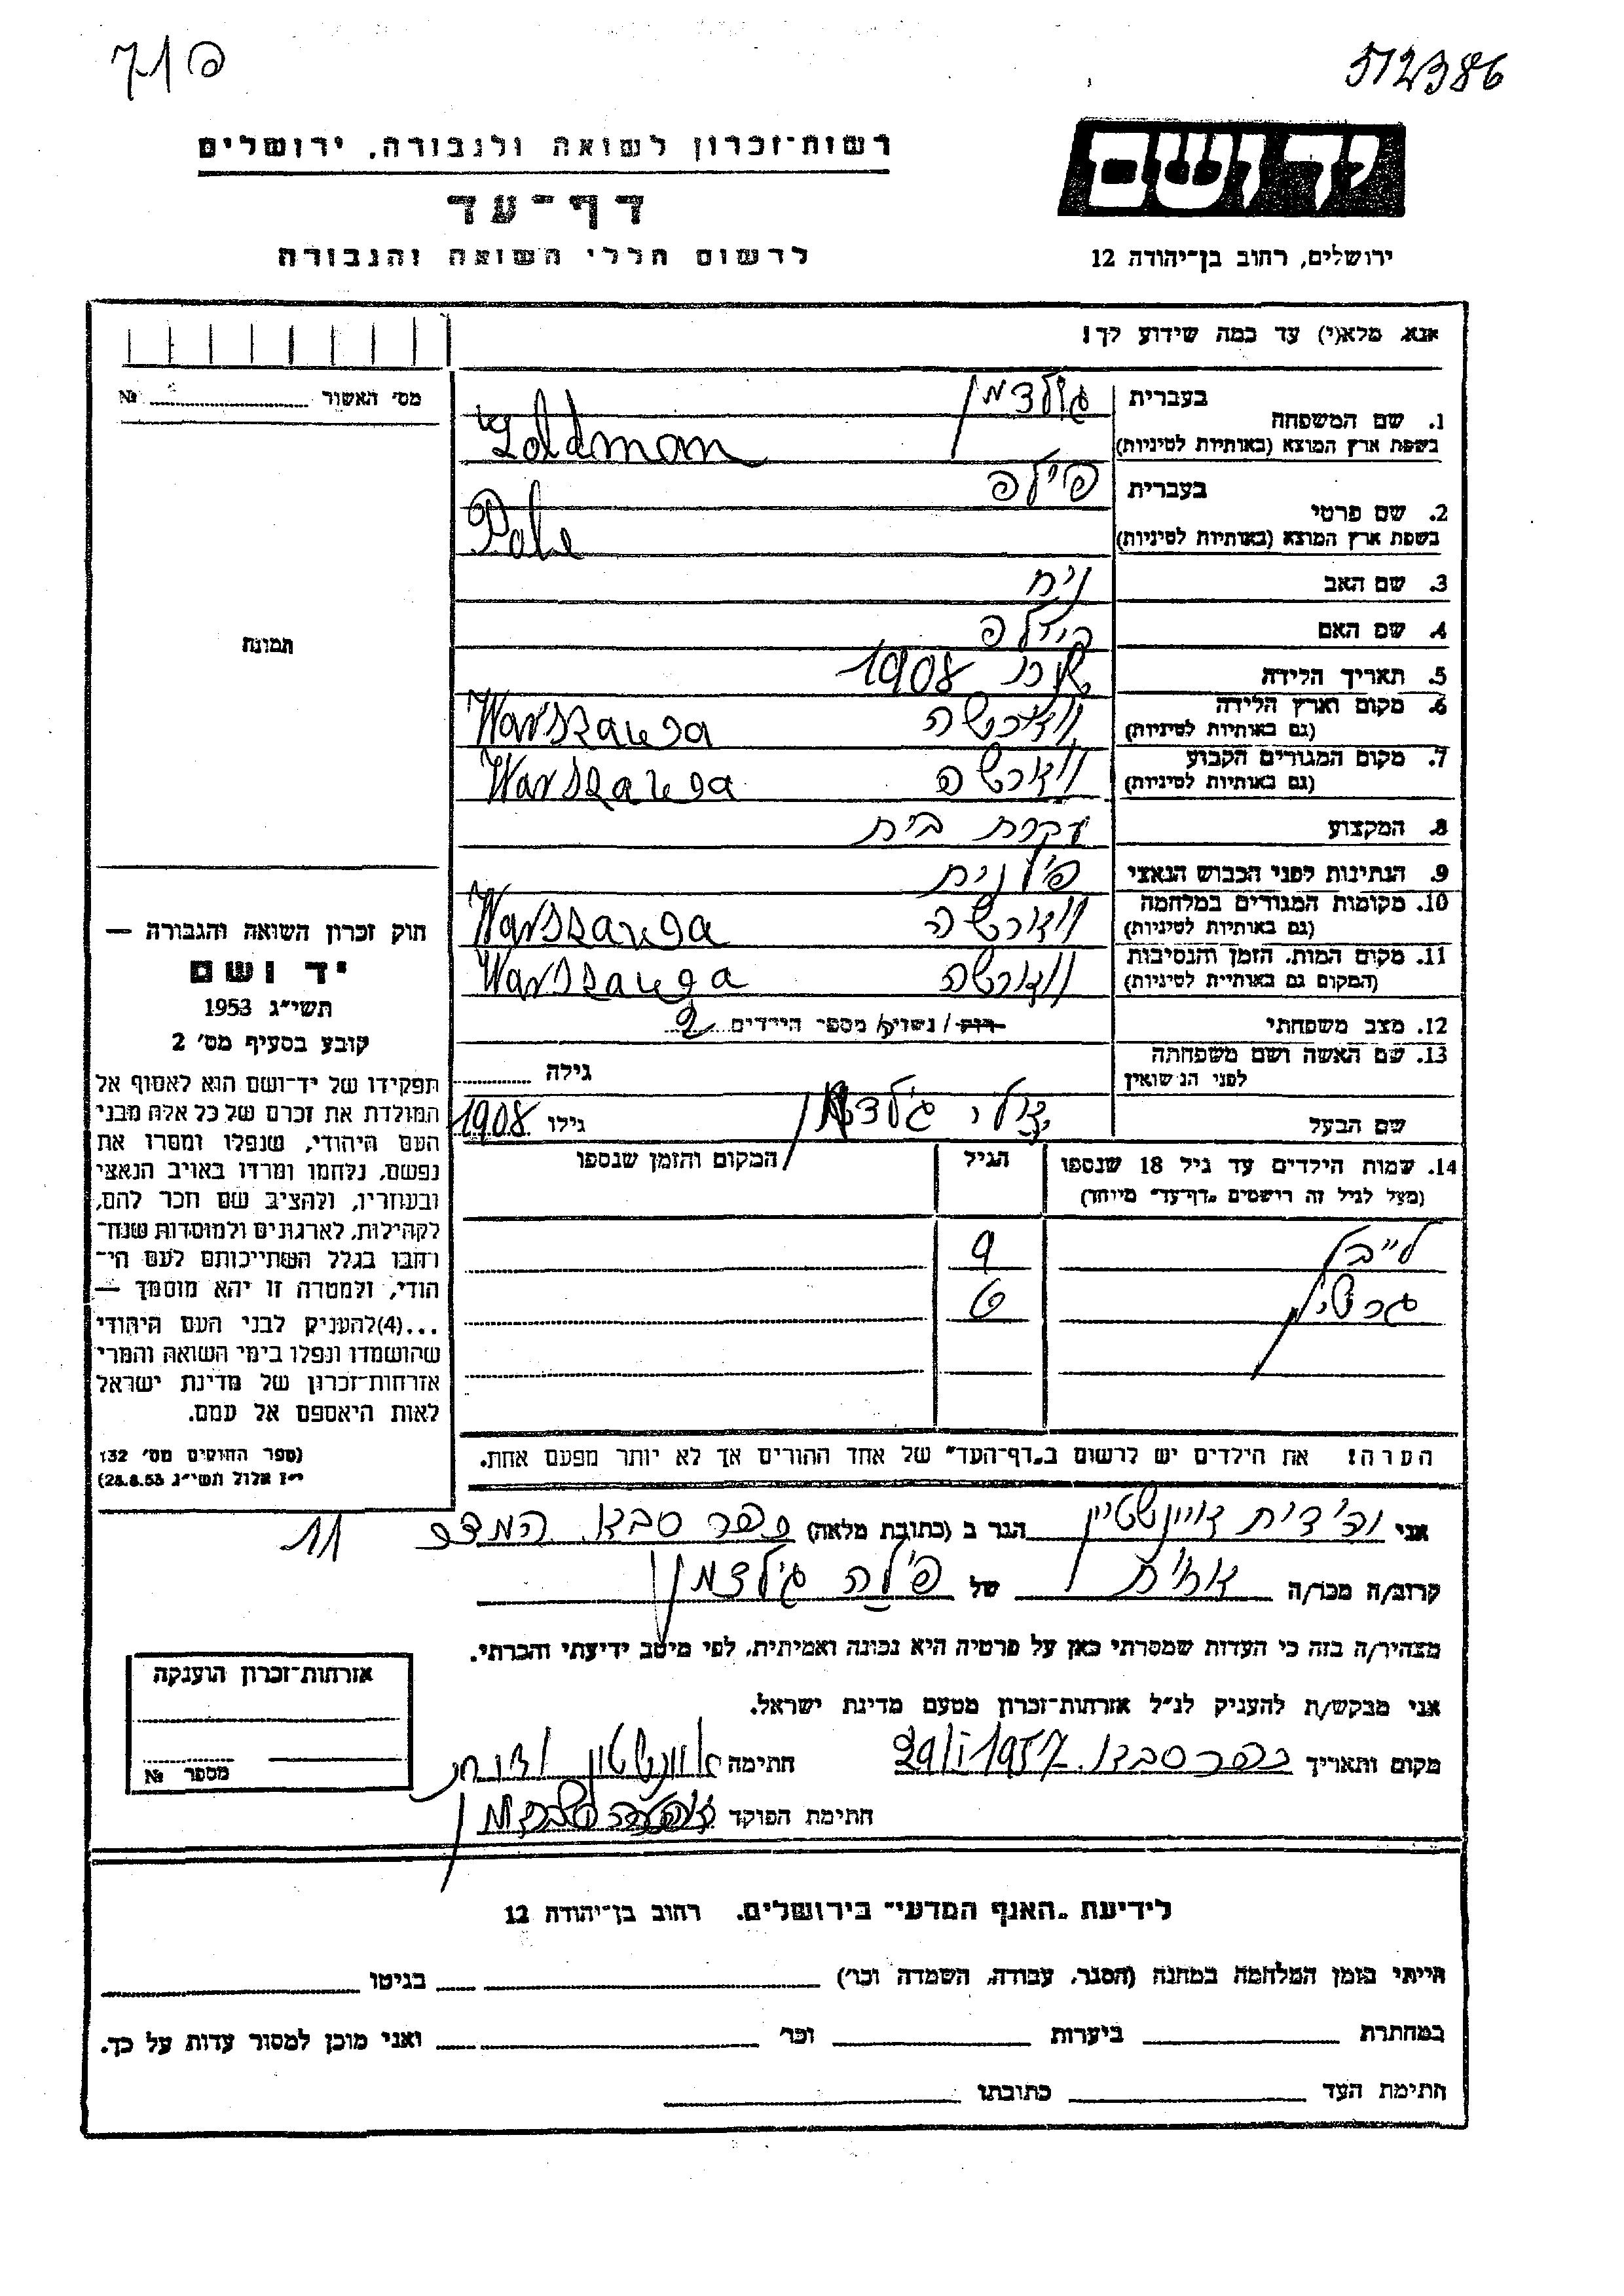 512386
יד ושם
ירושלים, רחוב בן־יהודה 12
רשות־זכרון לשואה ולגבורה, ירושלים
דף־עד
לרשום חללי השואה והגבורה
אנא, מלא(י) עד כמה שידוע לך!
1. שם המשפחה בעברית גולדמן
בשפת ארץ המוצא (באותיות לטיניות) Goldman
2. שם פרטי בעברית
בשפת ארץ המוצא (באותיות לטיניות)
3. שם האב
4. שם האם
5. תאריך הלידה 1908
6. מקום וארץ הלידה
(גם באותיות לטיניות) Warszawa
7. מקום המגורים הקבוע
(גם באותיות לטיניות) ווארשה Warszawa
8. המקצוע עקרת בית
9. הנתינות לפני הכבוש הנאצי פולנית
10. מקומות המגורים במלחמה
(גם באותיות לטיניות) ווארשה Warszawa
11. מקום המות, הזמן והנסיבות
(המקום גם באותיות לטיניות) ווארשה Warszawa
12. מצב משפחתי רוק / נשוי / מספר הילדים 2
13. שם האשה ושם משפחתה
לפני הנישואין גילה
שם הבעל גולדמן גילו 1908
14. שמות הילדים עד גיל 18 שנספו הגיל המקום והזמן שנספו
(מעל לגיל זה רושמים „דף־עד” מיוחד)
לייבל 9
6
הערה: את הילדים יש לרשום ב„דף־העד” של אחד ההורים אך לא יותר מפעם אחת.
מס' האשור №
תמונה
חוק זכרון השואה והגבורה —
יד ושם
תשי״ג 1953
קובע בסעיף מס׳ 2
תפקידו של יד־ושם הוא לאסוף אל
המולדת את זכרם של כל אלה מבני
העם היהודי, שנפלו ומסרו את
נפשם, נלחמו ומרדו באויב הנאצי
ובעוזריו, ולהציב שם וזכר להם,
לקהילות, לארגונים ולמוסדות שנח־
רחבו בגלל השתייכותם לעם הי־
הודי, ולמטרה זו יהא מוסמך —
...(4)להעניק לבני העם היהודי
שהושמדו ונפלו בימי השואה והמרי
אזרחות־זכרון של מדינת ישראל
לאות היאספם אל עמם.
(ספר החוקים מס׳ 132
י״ז אלול תשי״ג 28.8.53)
אני הגר ב (כתובת מלאה) כפר סבא 11
קרוב/ה מכר/ה אחות של פולה גולדמן
מצהיר/ה בזה כי העדות שמסרתי כאן על פרטיה היא נכונה ואמיתית, לפי מיטב ידיעתי והכרתי.
אני מבקש/ת להעניק לנ״ל אזרחות־זכרון מטעם מדינת ישראל.
מקום ותאריך כפר סבא 29/I 1957 חתימה
חתימת הפוקד
אזרחות־זכרון הוענקה
מספר №
לידיעת „האגף המדעי” בירושלים, רחוב בן־יהודה 12
הייתי בזמן המלחמה במחנה (הסגר, עבודה, השמדה וכו׳) בגיטו
במחתרת ביערות וכו׳ ואני מוכן למסור עדות על כך.
חתימת העד כתובתו